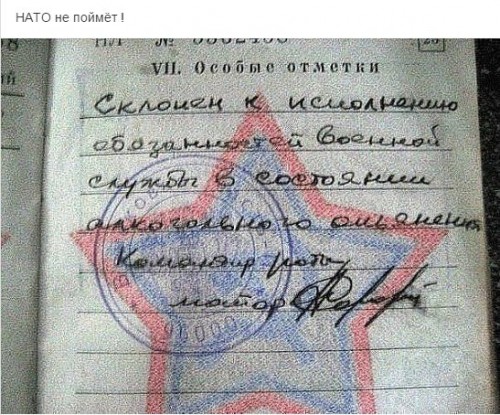 НАТО не поймёт !
НЛ №
23
VII. Особые отметки
Склонен к исполнению
обязанностей военной
службы в состоянии
алкогольного опьянения
Командир роты
майор